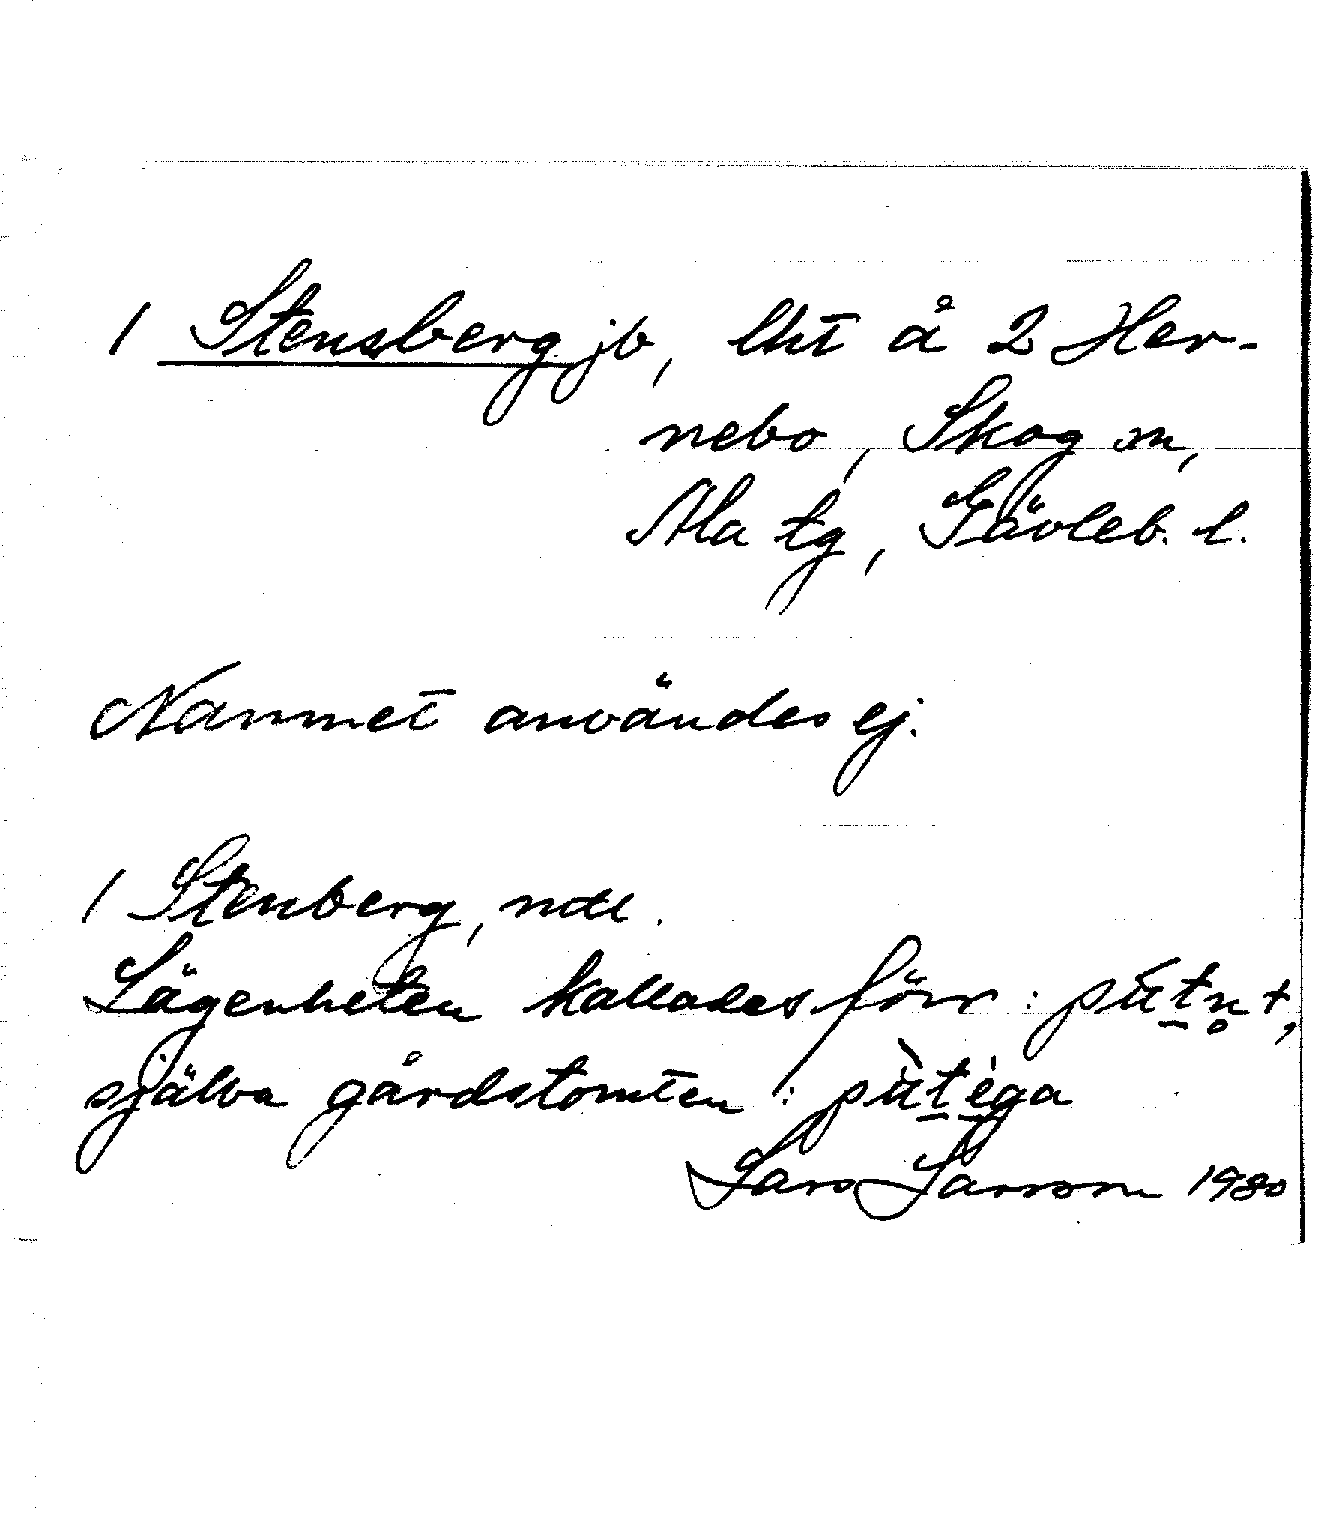 1 Stensberg jb, lht å 2 Her-
nebo, Skog sn,
Ala tg, Gävleb. l.
Namnet användes ej.
1 Stenberg, mtl.
Lägenheten kallades förr : pútn̥+,
själva gårdstomten : pùtèga
Lars Larsson 1980